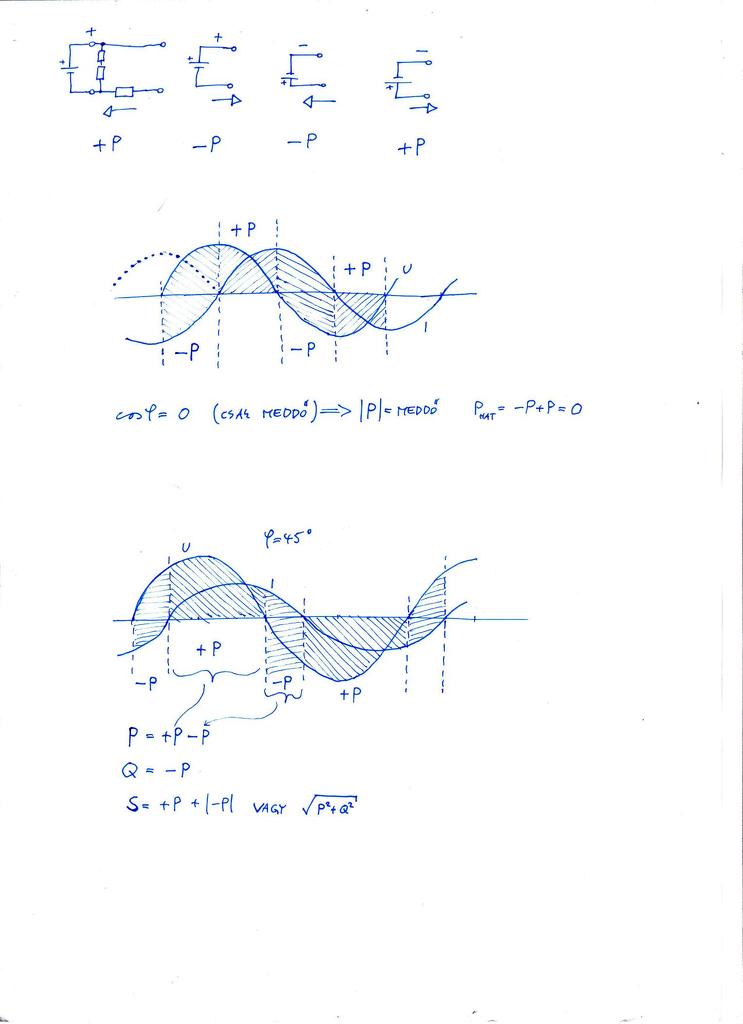 + + - -
+ + + +
+P -P -P +P
+P
+P U
I
-P -P
cosφ = 0 (CSAK MEDDŐ) => |P| = MEDDŐ P_HAT = -P+P = 0
φ=45°
U
I
+P
-P -P +P
P = +P -P
Q = -P
S = +P + |-P| VAGY √P²+Q²